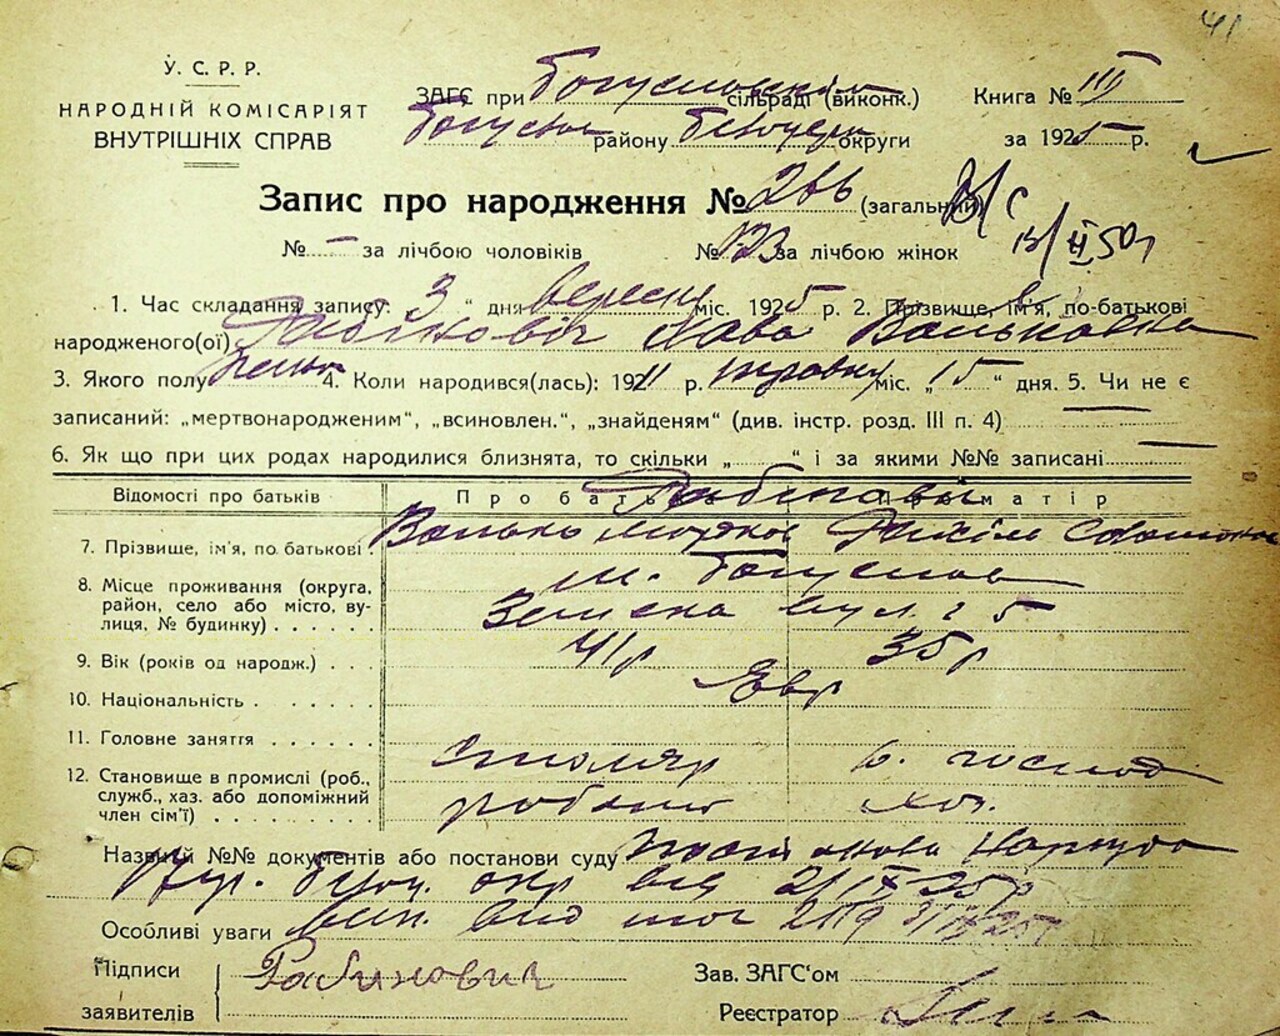 41
У. С. Р. Р.
НАРОДНІЙ КОМІСАРІЯТ
ВНУТРІШНІХ СПРАВ
ЗАГС при Богуславській сільраді (виконк.) Книга № III
Богуслав району Білоцерк округи за 1925 р.
Запис про народження № 266 (загальний)
№ – за лічбою чоловіків № 123 за лічбою жінок
1. Час складання запису: „3“ дня вересня міс. 1925 р. 2. Прізвище, ім'я, по-батькові
народженого(ої) Рабінович Хава Вольковна
3. Якого полу жіноч 4. Коли народився(лась): 1911 р. травня міс. „15“ дня. 5. Чи не є
записаний: „мертвонародженим“, „всиновлен.“, „знайденям“ (див. інстр. розд. III п. 4) —
6. Як що при цих родах народилися близнята, то скільки „ “ і за якими №№ записані —
Відомості про батьків Про батька Про матір
Рабінович
7. Прізвище, ім'я, по батькові Волько Рахіль
8. Місце проживання (округа, м. Богуслав
район, село або місто, ву- вул. 5
лиця, № будинку)
9. Вік (років од народж.) 41 р 35 р
10. Національність Євр
11. Головне заняття столяр д. господ
12. Становище в промислі (роб.,
служб., хаз. або допоміжний
член сім'ї) робітн
Назвий №№ документів або постанови суду Постанова Нарсуду
Білоц. окр від 2/IX 25р
Особливі уваги
Підписи
заявителів Рабинович
Зав. ЗАГС'ом
Реєстратор